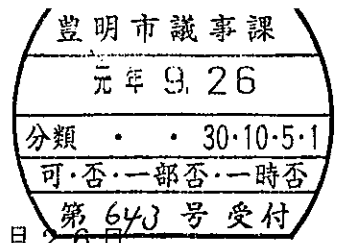 豊明市議事課
元年 9. 26
分類 ・ ・ 30・10・5・1
可・否・一部否・一時否
第 643 号 受付
月26日